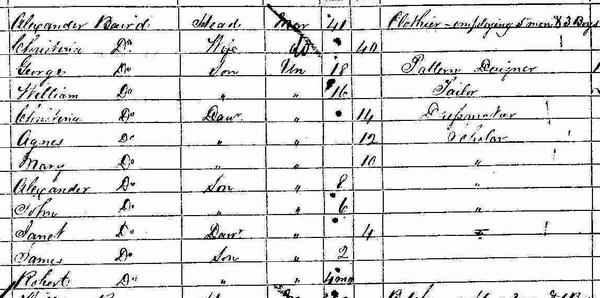 Alexander Baird Head Mar 41 Clothier - employing 5 men & 3 Boys
Christina Do Wife do 40
George Do Son Un 18 Pattern Deigner
William Do " " 16 Tailor
Christina Do Daur " 14 Dressmaker
Agnes Do " " 12 Scholar
Mary Do " " 10 "
Alexander Do Son " 8 "
John Do " " 6 "
Janet Do Daur " 4 "
James Do Son " 2
Robert Do " " 4mo